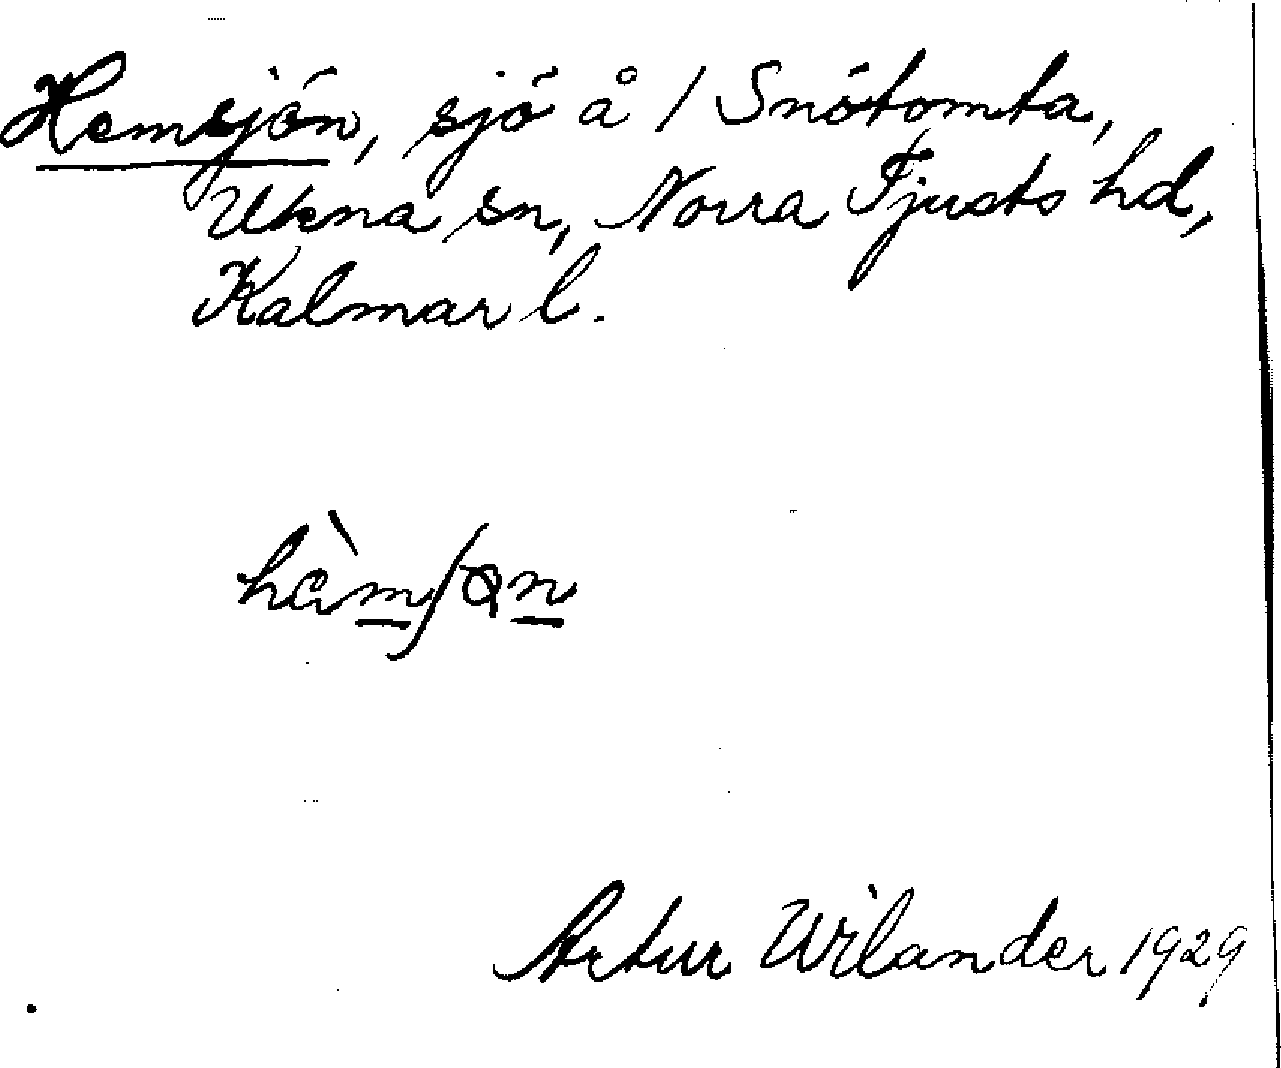 Hemsjön, sjö å / Snötomta,
Ukna sn, Norra Tjusts hd,
Kalmar l.
Artur Wilander 1929